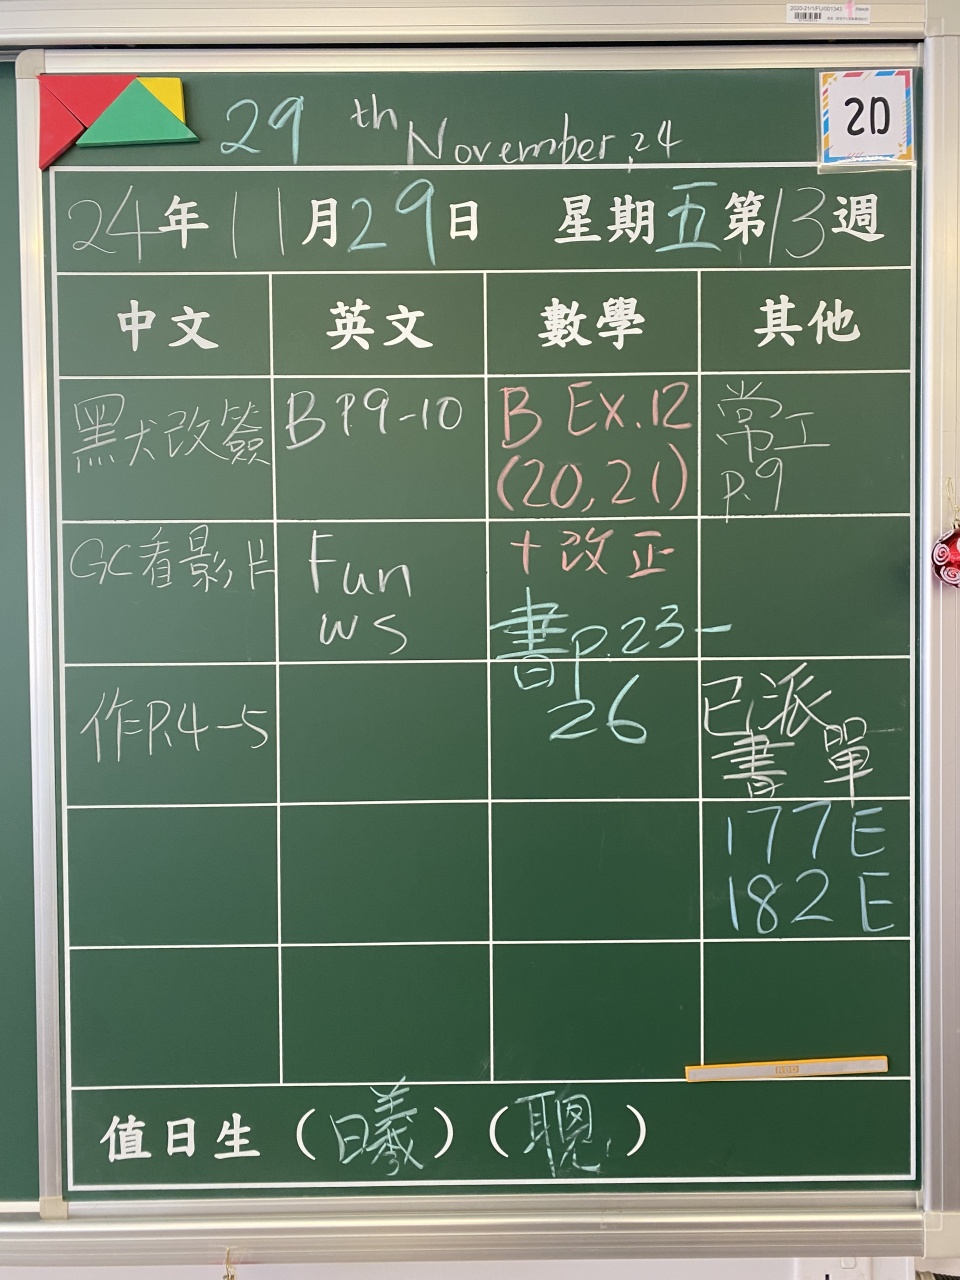 2020-21/1/FU/001343
29th November, 24
2D
24年11月29日 星期五第13週
中文 英文 數學 其他
黑犬改簽 B P.9-10 B Ex.12 常工
(20,21) p.9
GC看影片 Fun +改正
ws 書p.23-
作P.4-5 26 已派
書單
177E
182E
值日生 (曦) (聰)